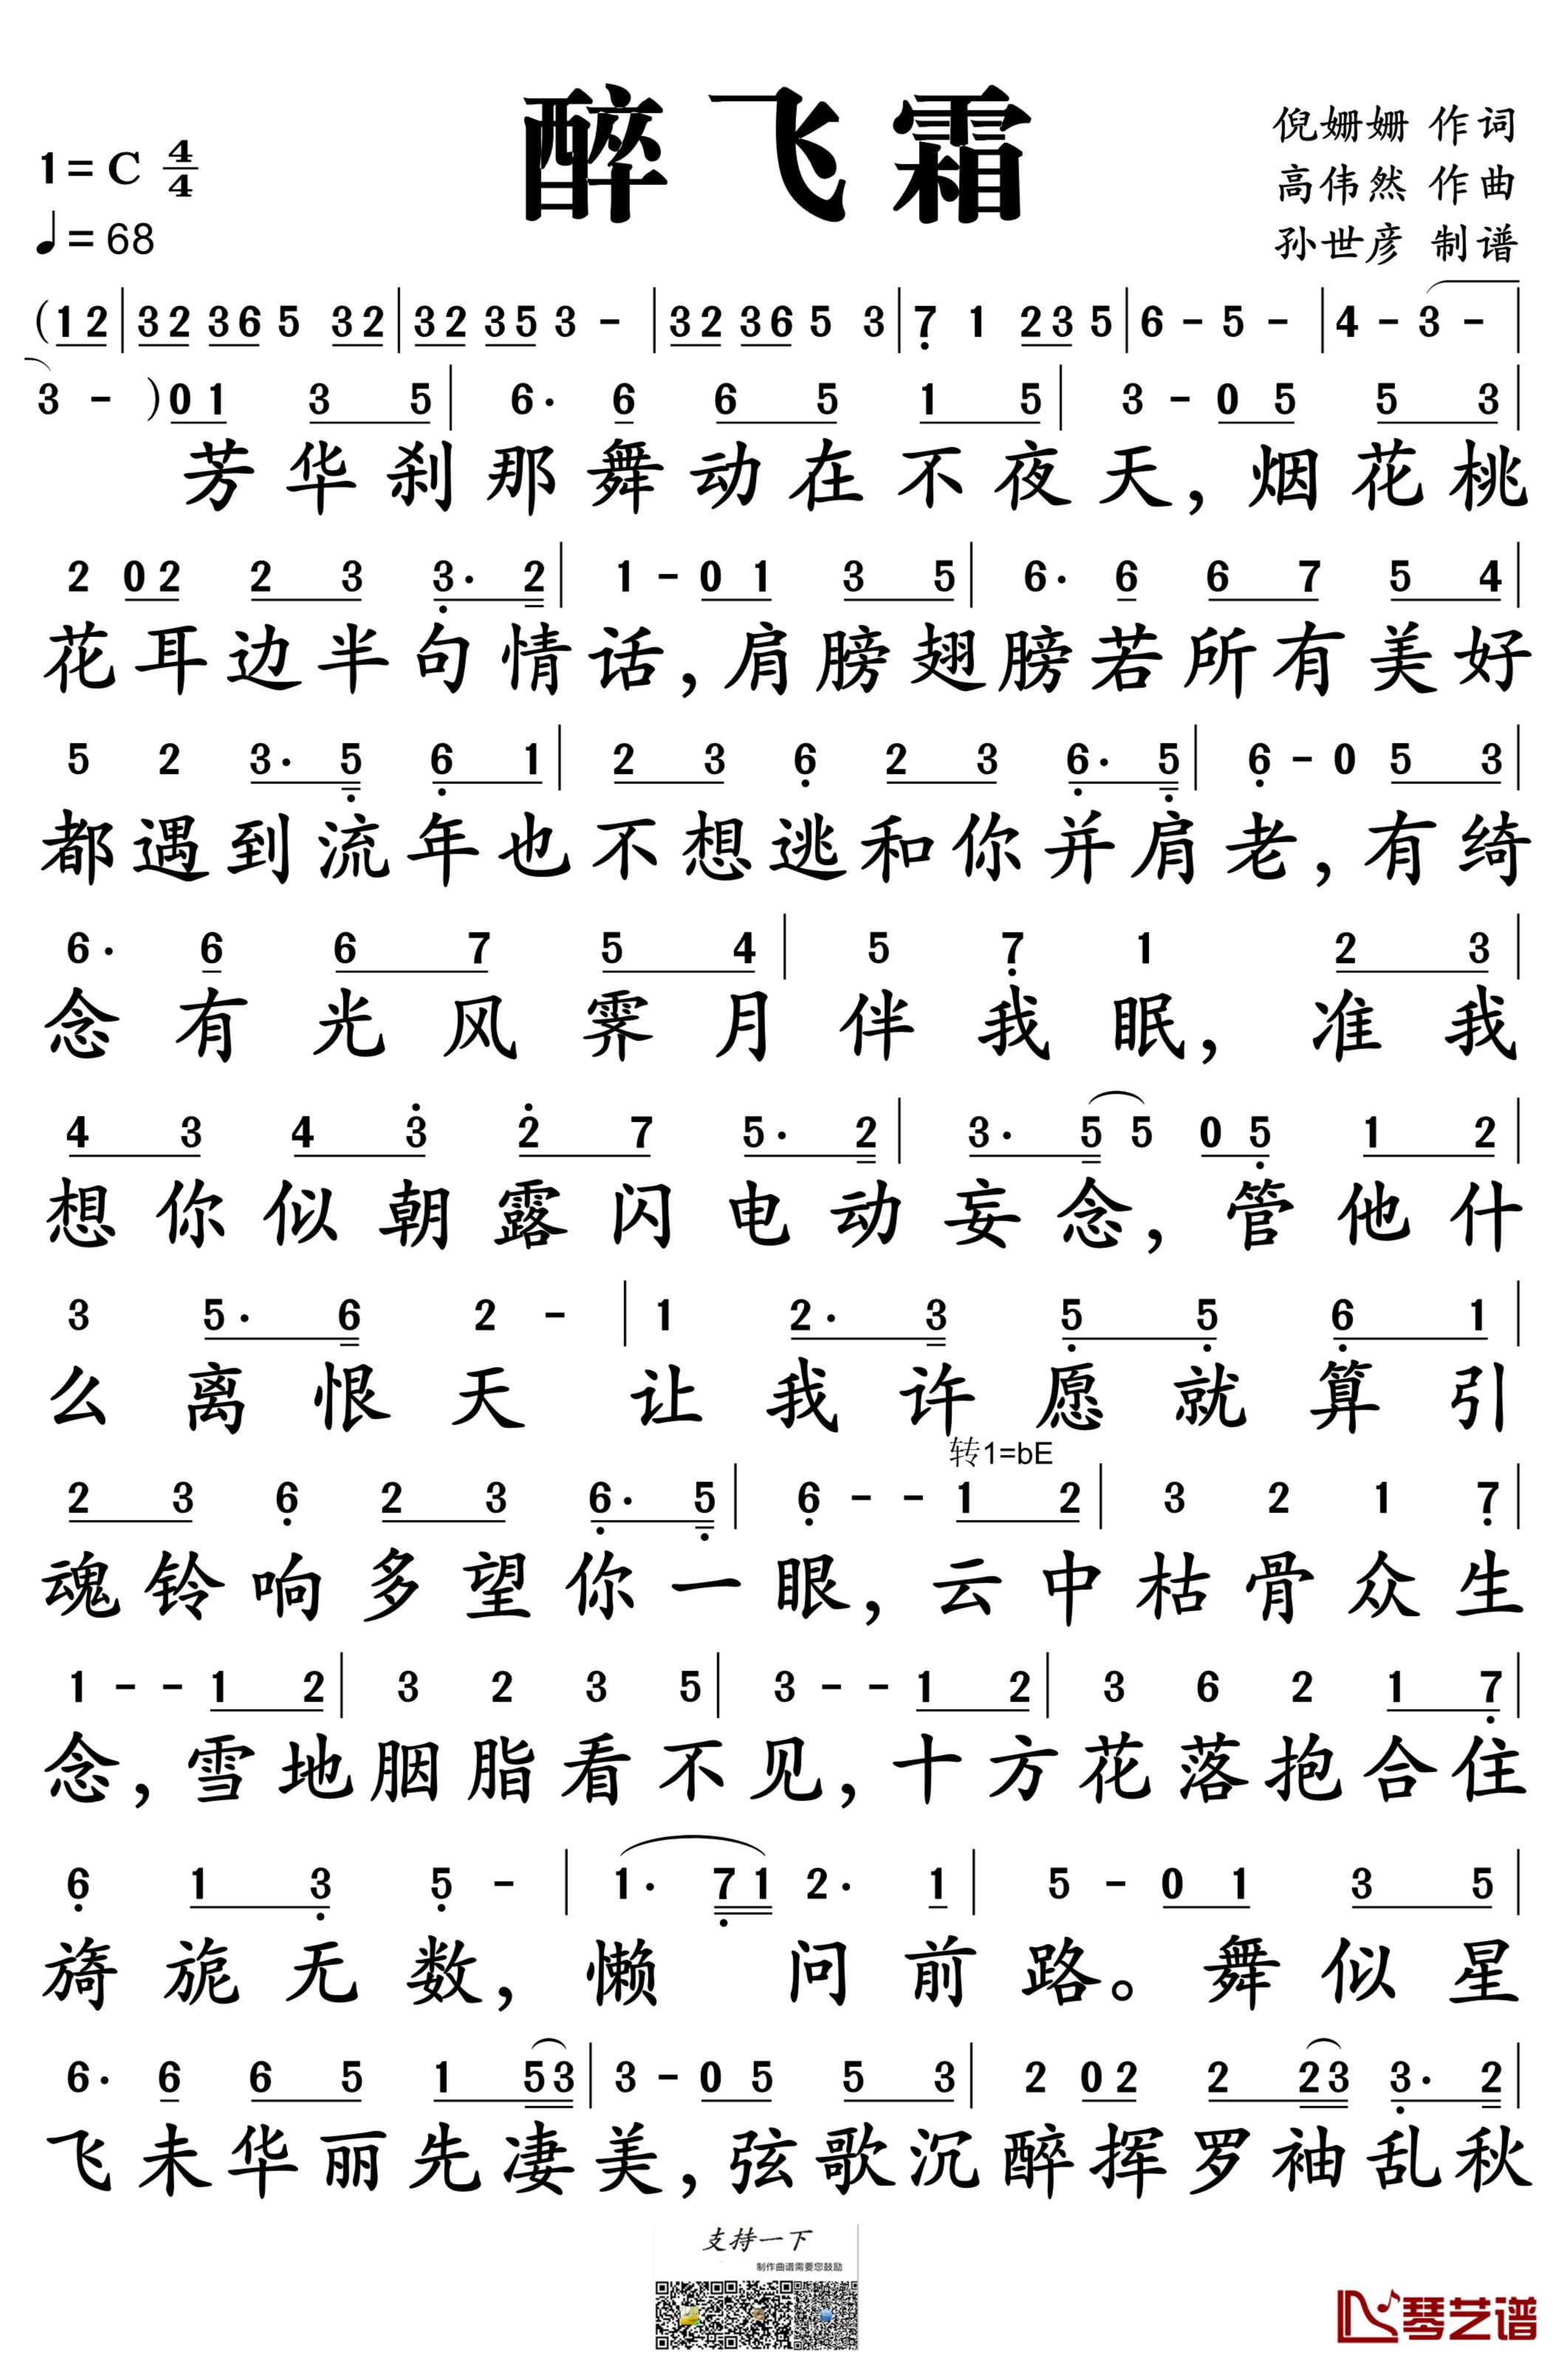 醉飞霜
倪姗姗 作词
1=C 4/4
高伟然 作曲
♩=68
孙世彦 制谱
(12|32 365 32|32 353 -|32 365 3|7 1 235|6 - 5 -|4 - 3 -|
3 - )01 3 5|6· 6 6 5 1 5|3 - 0 5 5 3|
芳华刹那舞动在不夜天，烟花桃
2 02 2 3 3· 2|1 - 0 1 3 5|6· 6 6 7 5 4|
花耳边半句情话，肩膀翅膀若所有美好
5 2 3· 5 6 1|2 3 6 2 3 6· 5|6 - 0 5 3|
都遇到流年也不想逃和你并肩老，有绮
6· 6 6 7 5 4|5 7 1 2 3|
念有光风霁月伴我眠，准我
4 3 4 3 2 7 5· 2|3· 5 5 0 5 1 2|
想你似朝露闪电动妄念，管他什
3 5· 6 2 -|1 2· 3 5 5 6 1|
么离恨天让我许愿就算引
转1=bE
2 3 6 2 3 6· 5|6 - - 1 2|3 2 1 7|
魂铃响多望你一眼，云中枯骨众生
1 - - 1 2|3 2 3 5|3 - - 1 2|3 6 2 1 7|
念，雪地胭脂看不见，十方花落抱合住
6 1 3 5 -|1· 71 2· 1|5 - 0 1 3 5|
旖旎无数，懒问前路。舞似星
6· 6 6 5 1 53|3 - 0 5 5 3|2 02 2 23 3· 2|
飞未华丽先凄美，弦歌沉醉挥罗袖乱秋
支持一下
制作曲谱需要您鼓励
琴艺谱